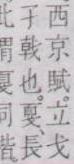 西京賦。立戈
孑戟也。戛、長
此謂戛同皆